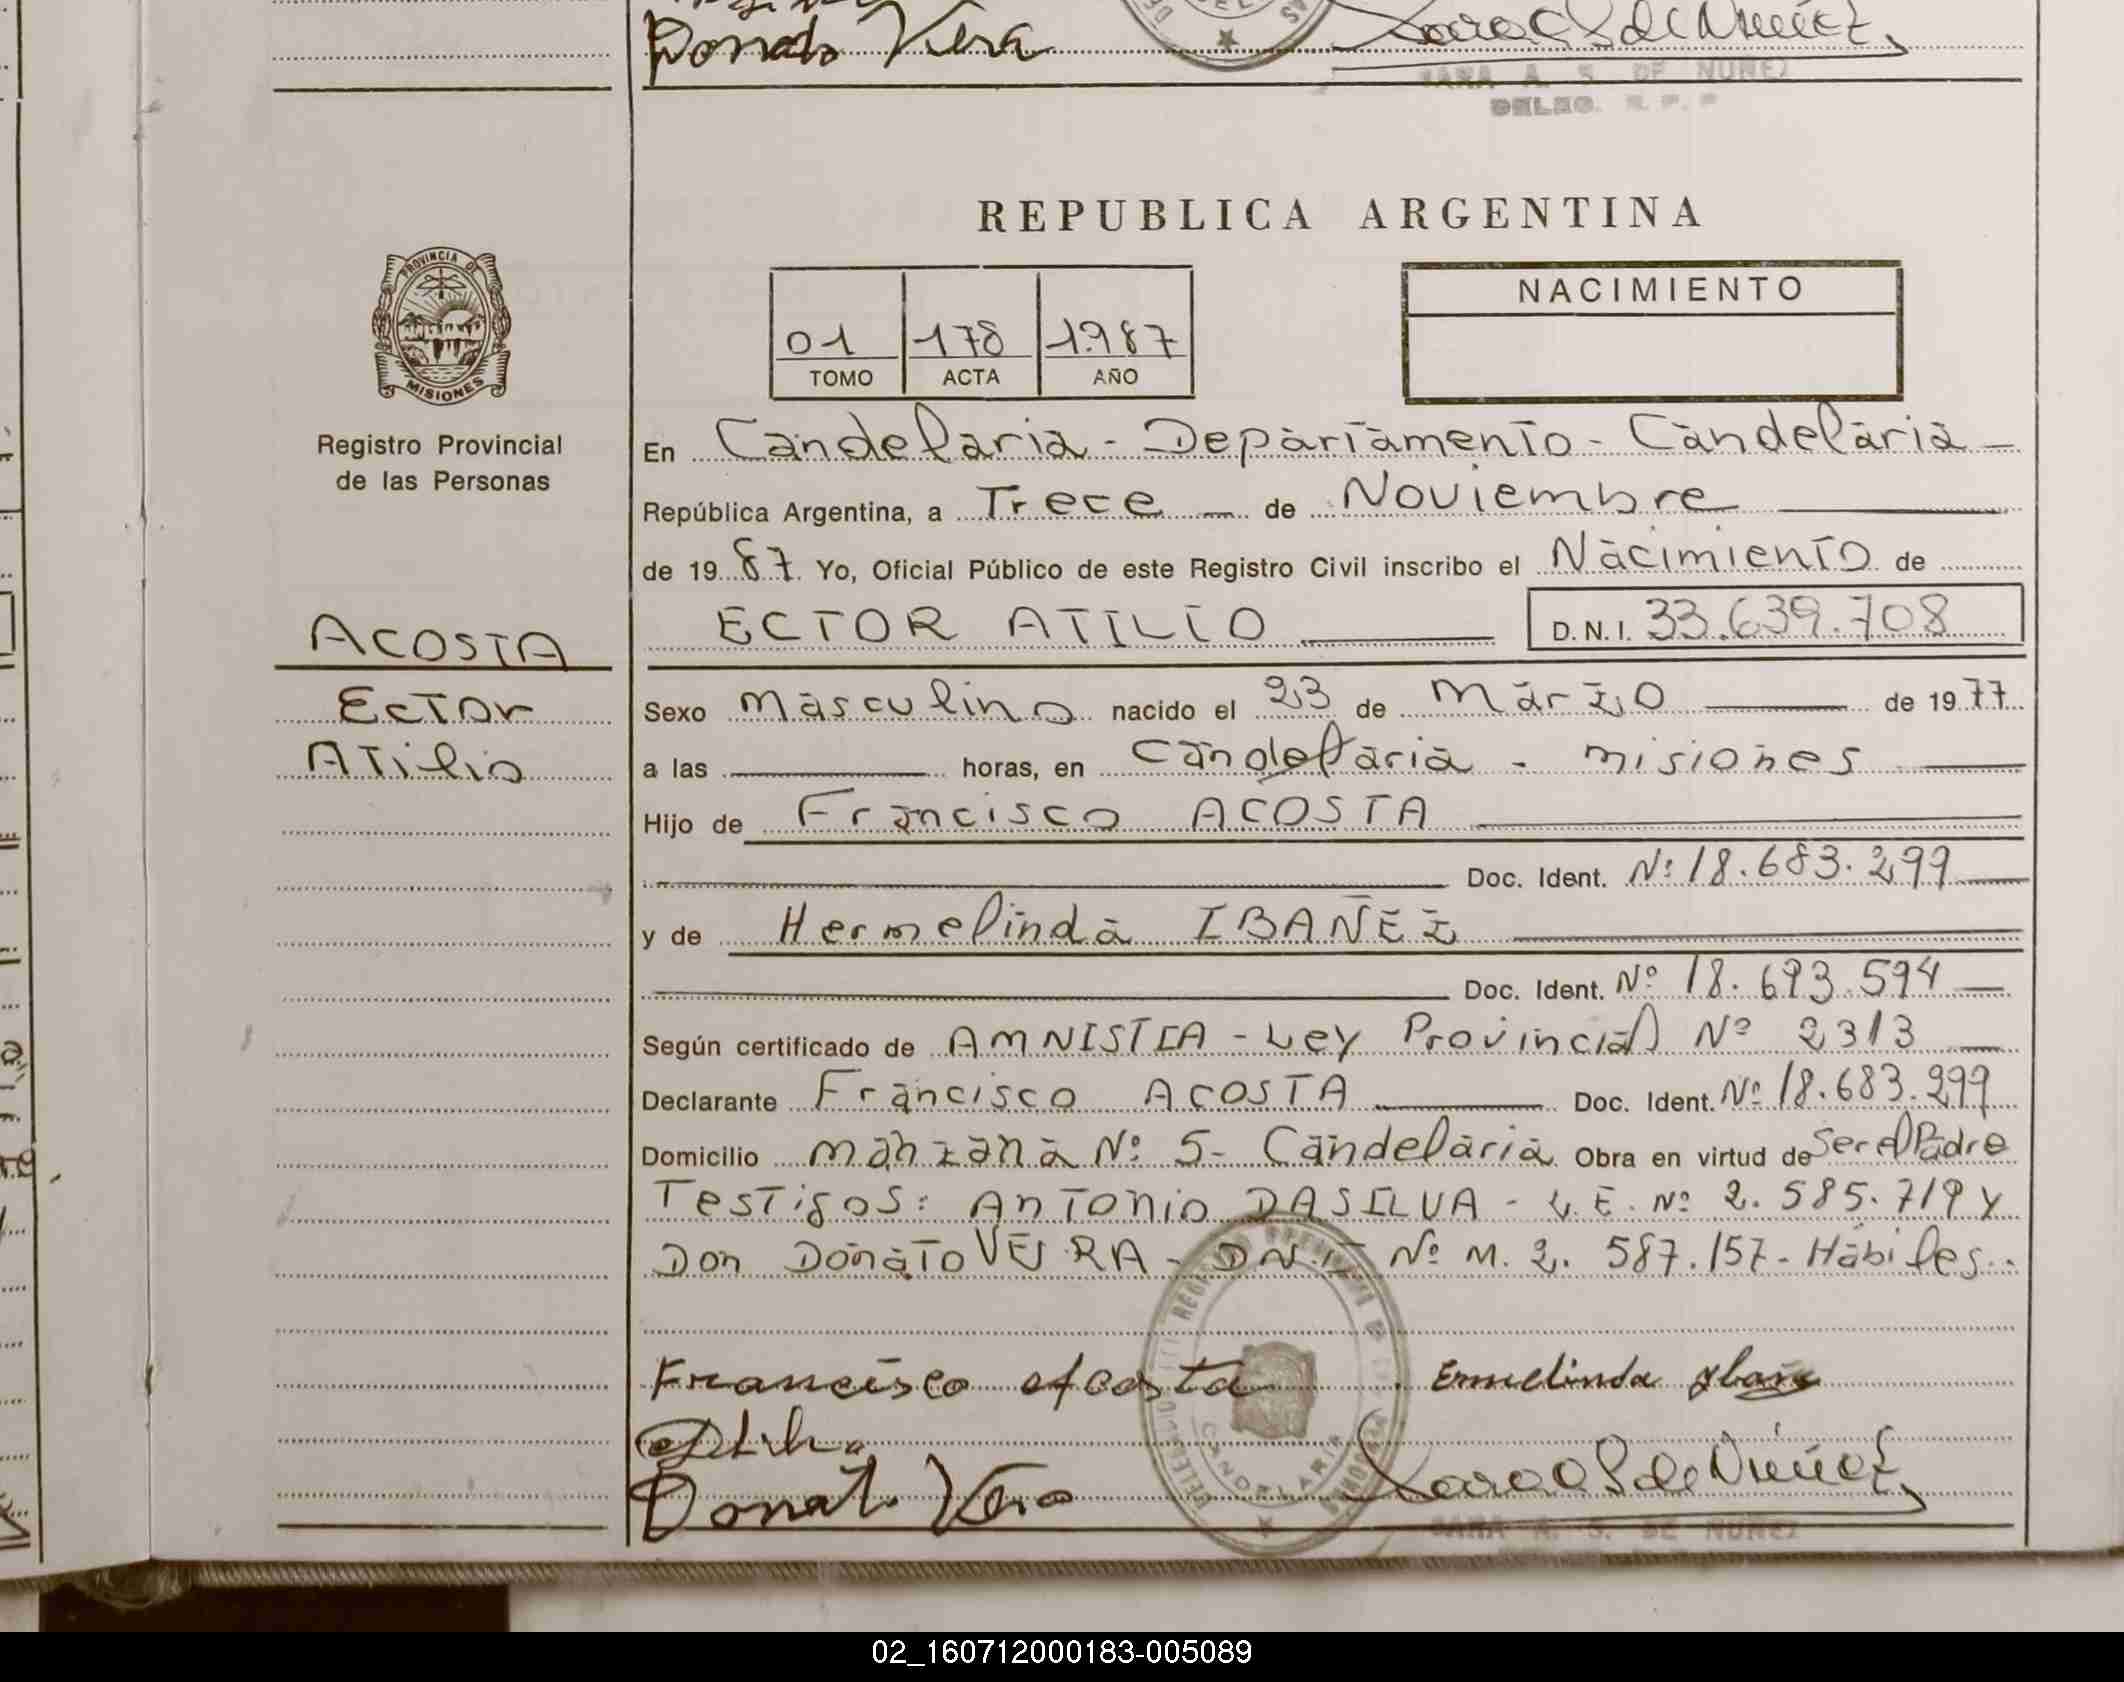 Donato Vera
SARA A. S. DE NUÑEZ
DELEG. R. P. P
REPUBLICA ARGENTINA
PROVINCIA DE
MISIONES
Registro Provincial
de las Personas
01 178 1.987
TOMO ACTA AÑO
NACIMIENTO
En Candelaria - Departamento - Candelaria -
República Argentina, a Trece - de Noviembre
de 19 87. Yo, Oficial Público de este Registro Civil inscribo el Nacimiento de
ECTOR ATILIO D.N.I. 33.639.708
ACOSTA
Ector
Atilio
Sexo masculino nacido el 23 de marzo de 1977
a las horas, en Candelaria - misiones
Hijo de Francisco ACOSTA
Doc. Ident. Nº 18.683.299
y de Hermelinda IBAÑEZ
Doc. Ident. Nº 18.693.594
Según certificado de AMNISTIA - Ley Provincial Nº 2313
Declarante Francisco ACOSTA Doc. Ident. Nº 18.683.299
Domicilio manzana Nº 5- Candelaria Obra en virtud de Ser el Padre
Testigos: Antonio DASILVA - L.E. Nº 2.585.719 y
Don Donato VEIRA - D.N.I. Nº M. 2.587.157 - Hábiles..
Francisco Acosta Ermelinda Ibañez
Donato Vera Sara A S de Nuñez
CANDELARIA
SARA A. S. DE NUÑEZ
02_160712000183-005089